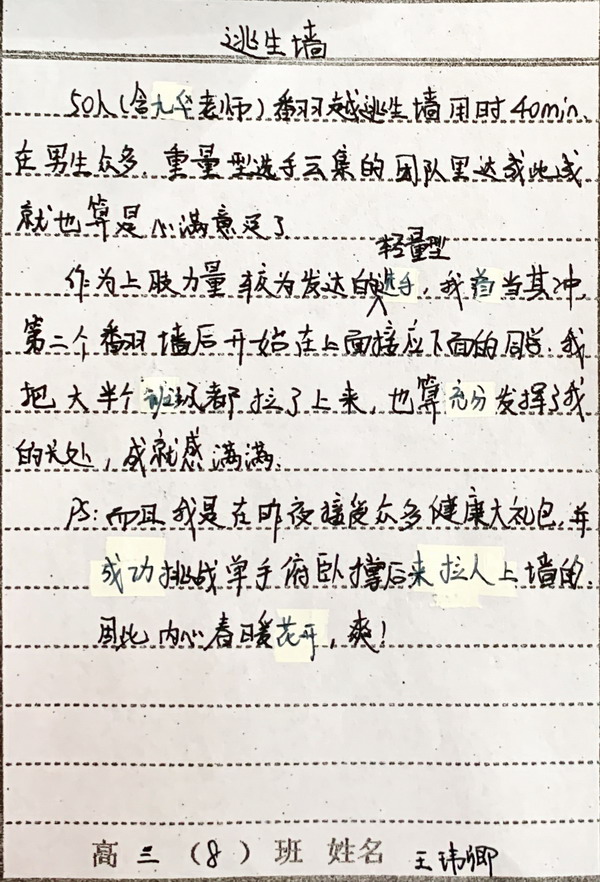 逃生墙
50人(含九华老师)翻越逃生墙用时40min.
在男生众多,重量型选手云集的团队里达成此成
就也算是心满意足了
轻量型
作为上肢力量较为发达的选手,我首当其冲,
第二个翻墙后开始在上面接应下面的同学.我
把大半个班级都拉了上来,也算充分发挥了我
的长处,成就感满满.
PS:而且我是在昨夜接受众多健康大礼包,并
成功挑战单手俯卧撑后来拉人上墙的.
因此内心春暖花开,爽!
高三(8)班 姓名 王玮卿